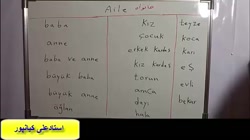 Aile خانواده
baba kız teyze
anne çocuk koca
baba ve anne erkek kardeş karı
büyük baba kız kardeş eş
büyük anne torun evli
oğlan amca bekar
dayı
hala
استاد علی کیانپور